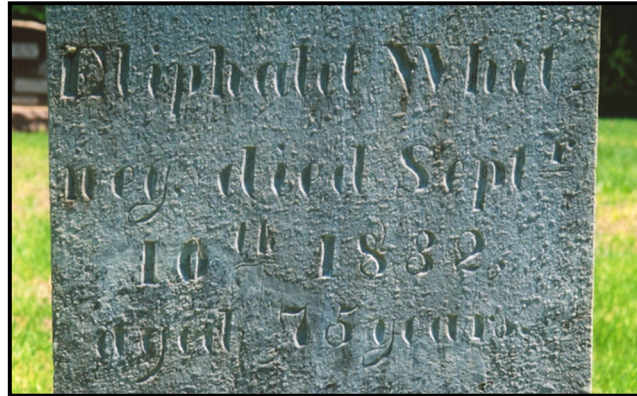 Eliphalet Whit
ney. died Septr
10th 1832.
aged 75 years